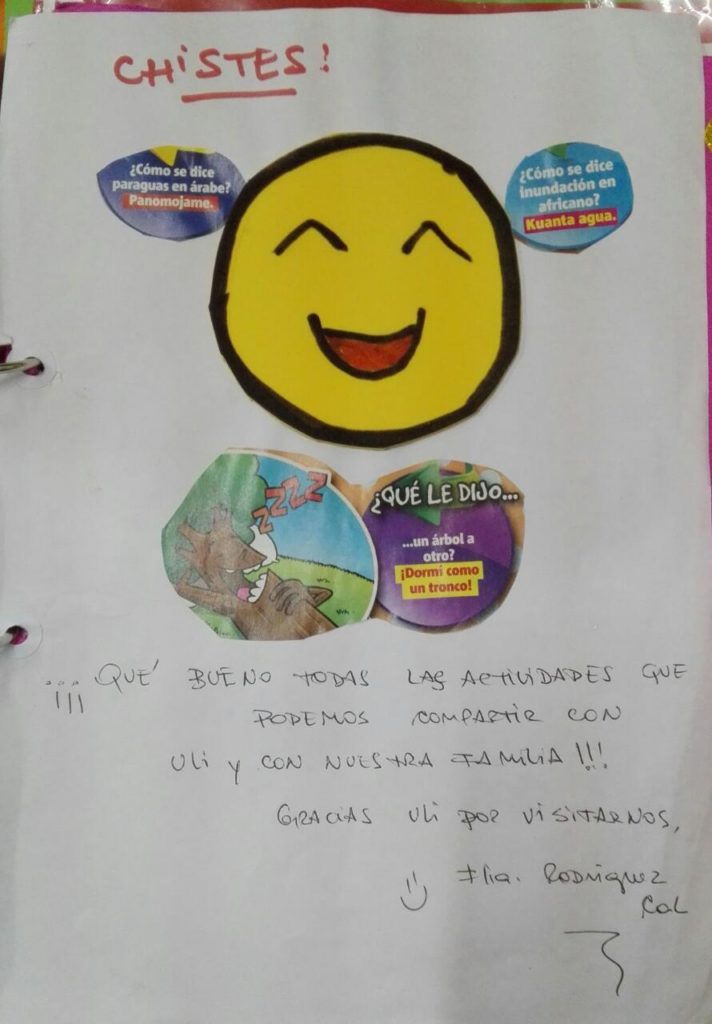 CHiSTES!
¿Cómo se dice
paraguas en árabe?
Panomojame.
¿Cómo se dice
inundación en
africano?
Kuanta agua.
ZZZZZ
¿QUÉ LE DIJO...
...un árbol a
otro?
¡Dormí como
un tronco!
¡¡¡ QUÉ BUENO TODAS LAS ACTIVIDADES QUE
PODEMOS COMPARTIR CON
Uli y CON NUESTRA FAMILIA!!!
GRACIAS Uli POR VISITARNOS,
Flia. RODRIGUEZ
Cal